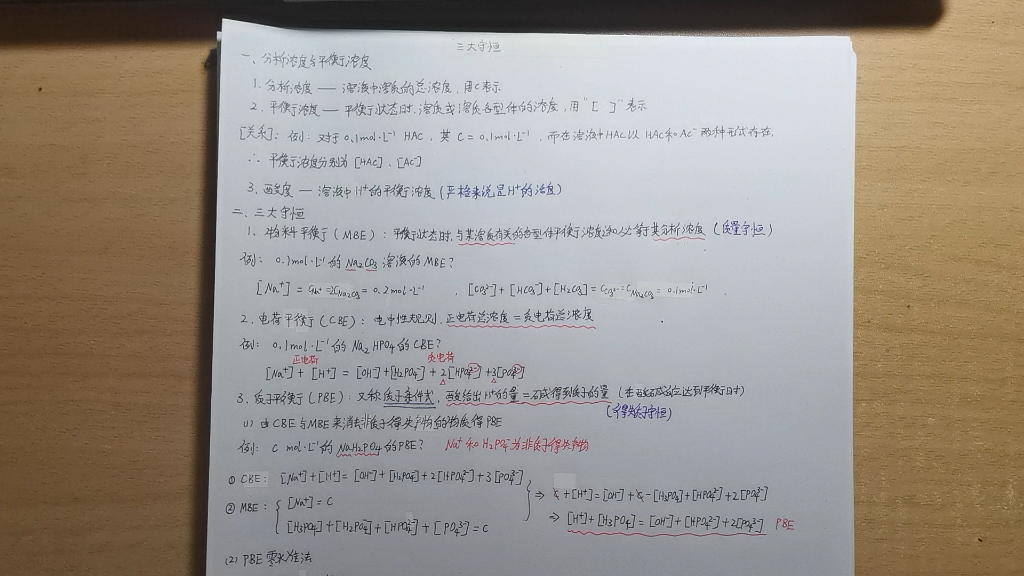 三大守恒
一、分析浓度与平衡浓度
1. 分析浓度 —— 溶液中溶质的总浓度，用c表示
2. 平衡浓度 —— 平衡状态时，溶质或溶质各型体的浓度，用“[ ]”表示
[关系]：例：对于0.1mol·L⁻¹ HAC，其 C = 0.1mol·L⁻¹，而在溶液中HAC以 HAC和AC⁻ 两种形式存在，
∴ 平衡浓度分别为 [HAC]、[AC⁻]
3. 酸度 — 溶液中H⁺的平衡浓度（严格来说是H⁺的活度）
二、三大守恒
1、物料平衡（MBE）：平衡状态时，与某溶质有关的各型体平衡浓度之和必等于其分析浓度（质量守恒）
例：0.1mol·L⁻¹的 Na₂CO₃ 溶液的MBE？
[Na⁺] = C_Na⁺=2C_Na₂CO₃ = 0.2mol·L⁻¹ ，[CO₃²⁻] + [HCO₃⁻] + [H₂CO₃] = C_CO₃²⁻ = C_Na₂CO₃ = 0.1mol·L⁻¹
2、电荷平衡（CBE）：电中性规则，正电荷总浓度 = 负电荷总浓度
例：0.1mol·L⁻¹的 Na₂HPO₄的CBE？
正电荷 负电荷
[Na⁺] + [H⁺] = [OH⁻]+[H₂PO₄⁻] + 2[HPO₄²⁻] + 3[PO₄³⁻]
3、质子平衡（PBE）：又称质子条件式，酸给出H⁺的量 = 碱得到质子的量（在酸碱反应达到平衡时）
（得失质子守恒）
(1) 由CBE与MBE来消去非质子得失产物的物质得PBE
例：C mol·L⁻¹的NaH₂PO₄的PBE？ Na⁺和H₂PO₄⁻为非质子得失产物
① CBE：[Na⁺]+[H⁺] = [OH⁻]+[H₂PO₄⁻]+2[HPO₄²⁻]+3[PO₄³⁻] ⇒ C+[H⁺]=[OH⁻]+C-[H₃PO₄]+[HPO₄²⁻]+2[PO₄³⁻]
② MBE：{ [Na⁺] = C
[H₃PO₄]+[H₂PO₄⁻]+[HPO₄²⁻]+[PO₄³⁻] = C ⇒ [H⁺]+[H₃PO₄] = [OH⁻]+[HPO₄²⁻]+2[PO₄³⁻] PBE
(2) PBE 零水准法